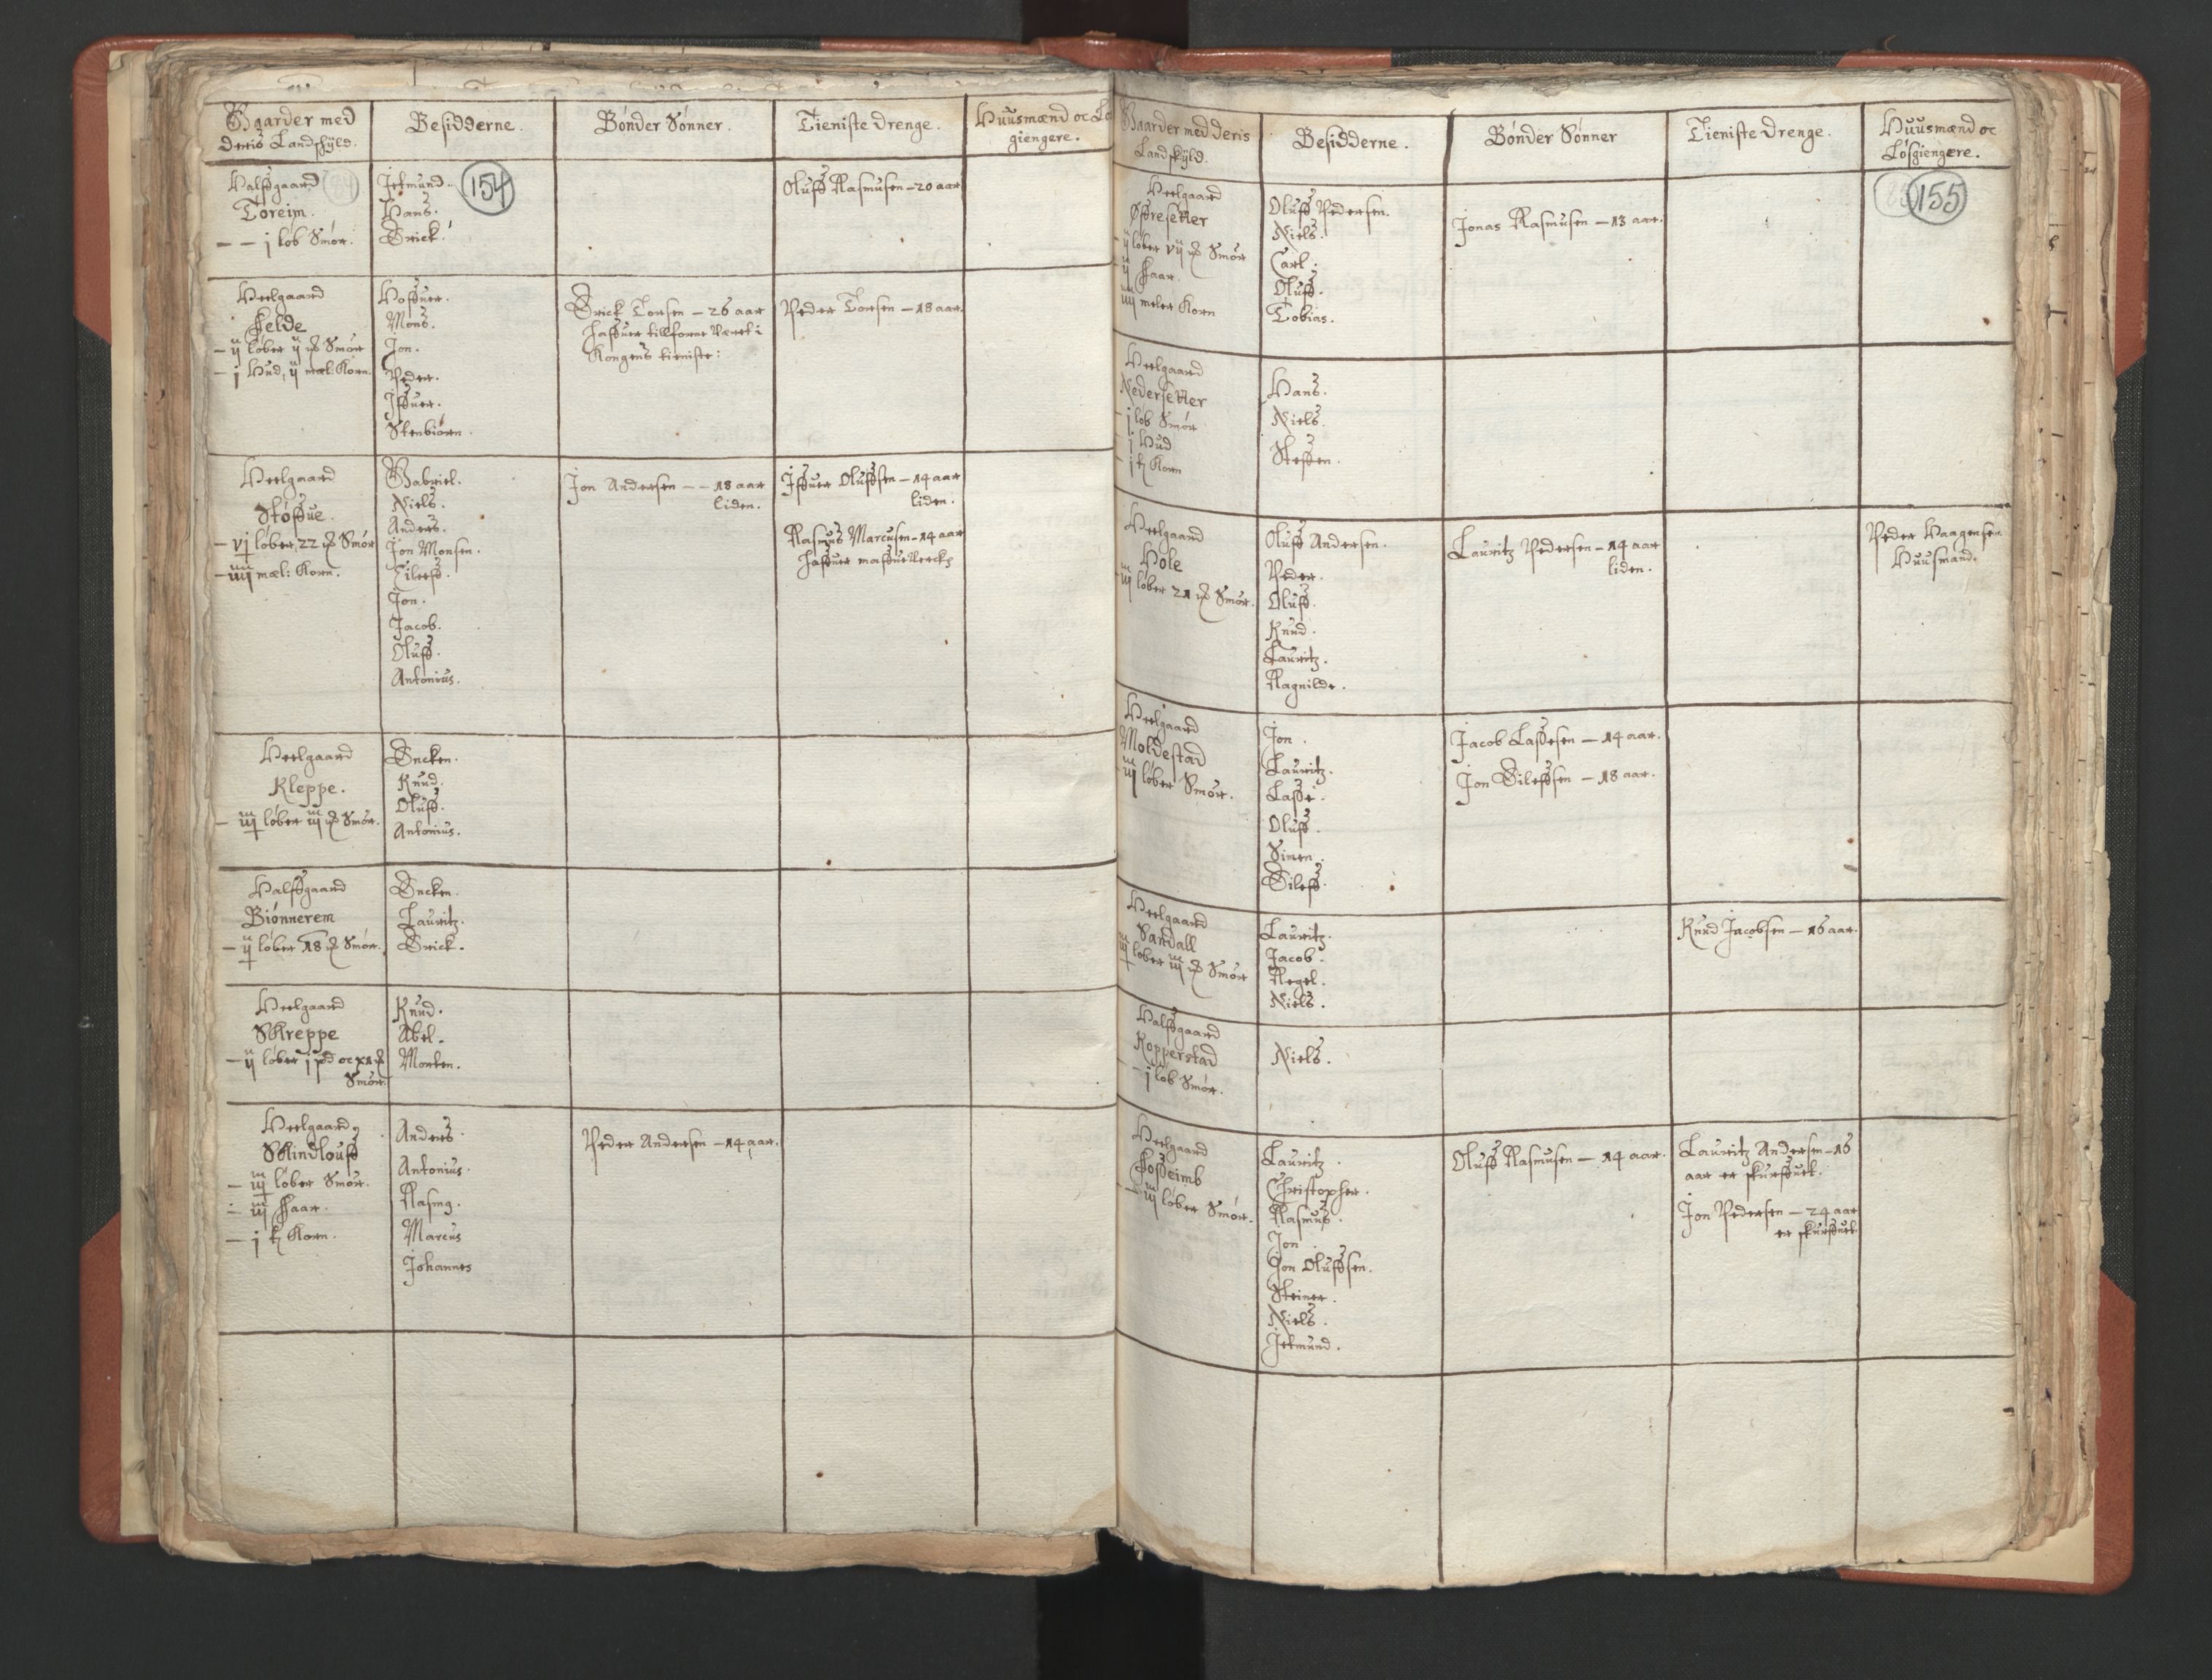 Gaarder med
deris Landskyld.
Besidderne.
Bönder Sönner.
Tieniste drenge.
Huusmænd oc Lö
giengere.
154
Halffgaard
Toreim.
– – j löb Smör.
Jetmund.
Hans.
Erick.
Oluff Rasmusen – 20 aar
Heelgaard
Felde
– ij löber ij ℔ Smör
– j Hud, ij mæl: Korn.
Hoffuer.
Mons.
Jon.
Peder.
Iffuer.
Stenbiörn.
Erick Torsen – 26 aar
haffuer tillforne Verret i
Kongens tieniste:
Peder Torsen – 18 aar.
Heelgaard
Stöffue.
– vj löber, 22 ℔ Smör
– iiij mæl: Korn.
Gabriel.
Niels.
Anders.
Jon Monsen.
Eileff.
Jon.
Jacob.
Oluff.
Antonius.
Jon Andersen – – 18 aar
liden.
Iffuer Oluffsen – 14 aar
liden.
Rasmus Marcusen – 14 aar
haffuer maffueVerck
Heelgaard
Kleppe.
– iij löber iij ℔ Smör.
Encken.
Knud.
Oluff.
Antonius.
Halffgaard
Biönnerem
– ij löber 18 ℔ Smör.
Encken.
Lauritz.
Erick.
Heelgaard
Skreppe
– ij löber j pd oc x1 ℔
Smör
Knud.
Abel.
Morten.
Heelgaard
Skindlouff
– iij löber Smör.
– iij Faar.
– j t Korn.
Anders.
Antonius.
Rasmq.
Marcus
Johannes
Peder Andersen – 14 aar.
Gaarder med deris
Landskyld.
Besidderne.
Bönder Sönner
Tieniste drenge.
Huusmænd oc
Lösgiengere.
155
Heelgaard
Öffresetter
– ij löber vij ℔ Smör
– ij Faar.
iiij meler Korn
Oluff Pedersen.
Niels.
Carl.
Oluff.
Tobias.
Jonas Rasmusen – 13 aar.
Heelgaard
Nedersetter
– j löb Smör
– j Hud
– j t Korn
Hans.
Niels.
Steffen.
Heelgaard
Hole
iij löber 21 ℔ Smör.
Oluff Andersen.
Peder.
Oluff.
Knud.
Lauritz.
Ragnilde.
Lauritz Pedersen – 14 aar
liden.
Peder Haagensen
Huusmand.
Heelgaard
Moldestad
iij löber Smör.
Jon.
Lauritz.
Lasse.
Oluff.
Simen.
Eileff.
Jacob Lassesen – 14 aar.
Jon Eileffsen – 18 aar.
Heelgaard
Sandall
iij löber iij ℔ Smör
Lauritz.
Jacob.
Regel.
Niels.
Knud Jacobsen – 16 aar.
Halffgaard
Kopperstad
– j löb Smör.
Niels.
Heelgaard
Fosseimb
– iij löber Smör.
Lauritz.
Christopher.
Rasmus.
Jon
Jon Oluffsen.
Steiner.
Niels.
Jetmund.
Oluff Rasmusen – 14 aar.
Lauritz Andersen – 16
aar er skurffuet.
Jon Pedersen – 24 aar
er skurffuet